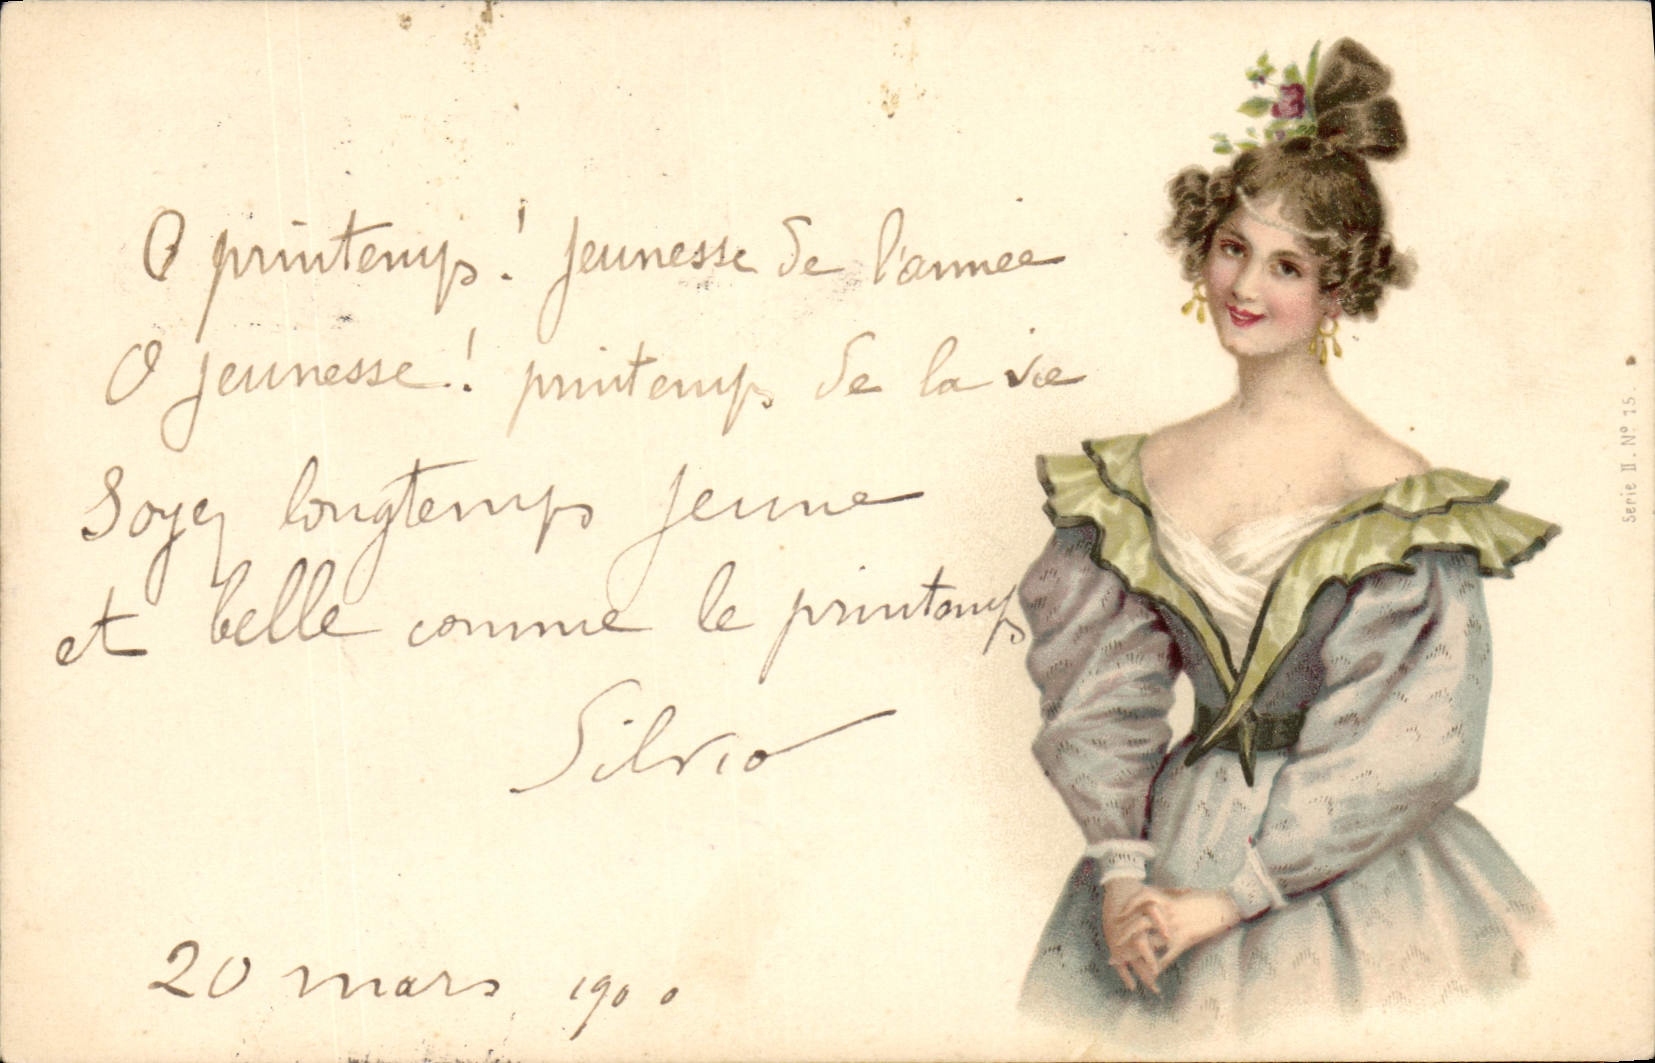 O printemps ! jeunesse de l'année
O jeunesse ! printemps de la vie
Soyez longtemps jeune
et belle comme le printemps
Silvio
20 mars 1900
Serie II. Nº 15.